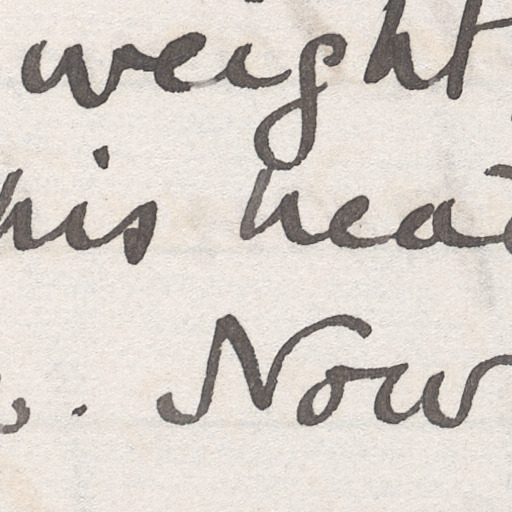 weight
his head
. Now